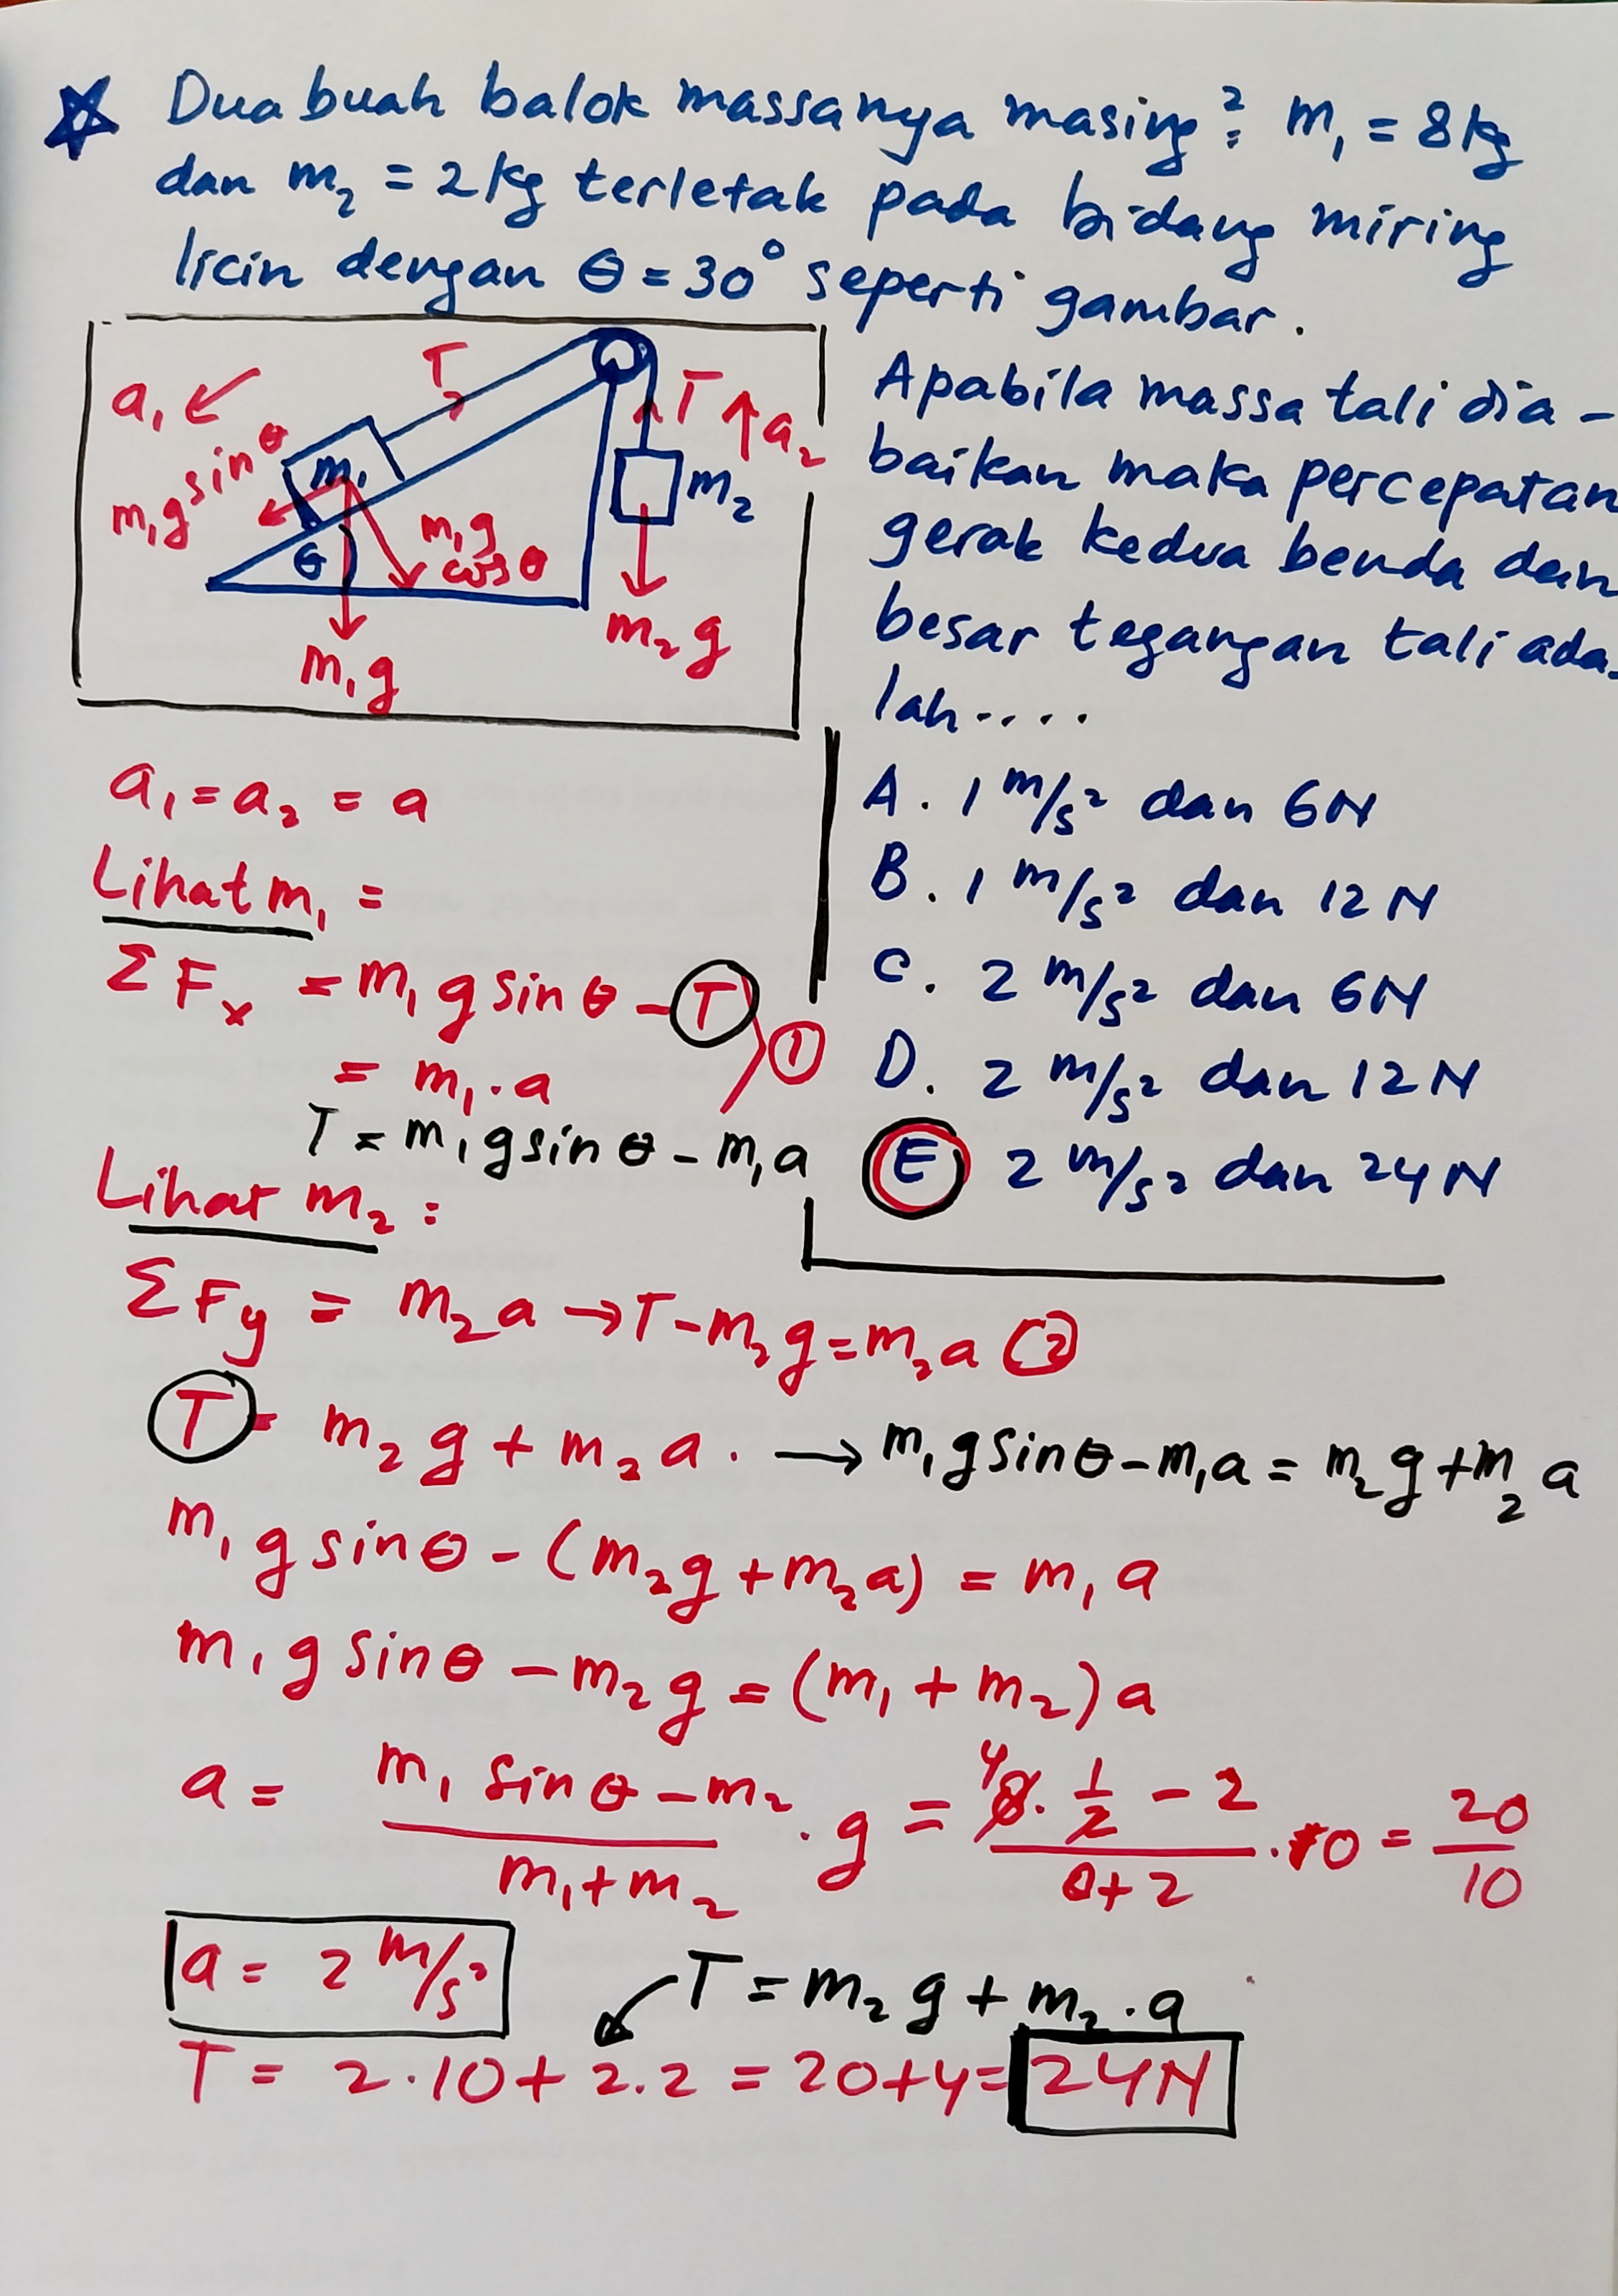 ☆ Dua buah balok massanya masing²: m₁ = 8 kg
dan m₂ = 2 kg terletak pada bidang miring
licin dengan θ = 30° seperti gambar.
a₁ ↙
T
T ↑ a₂
m₁g sin θ
m₁
m₂
θ
m₁g cos θ
m₁g
m₂g
Apabila massa tali dia-
baikan maka percepatan
gerak kedua benda dan
besar tegangan tali ada-
lah....
A. 1 m/s² dan 6 N
B. 1 m/s² dan 12 N
C. 2 m/s² dan 6 N
D. 2 m/s² dan 12 N
E 2 m/s² dan 24 N
a₁ = a₂ = a
Lihat m₁ =
ΣFₓ = m₁ g sin θ - T
= m₁ . a ①
T = m₁ g sin θ - m₁ a
Lihat m₂ :
ΣFy = m₂ a → T - m₂ g = m₂ a ②
T = m₂ g + m₂ a . → m₁ g sin θ - m₁ a = m₂ g + m₂ a
m₁ g sin θ - (m₂ g + m₂ a) = m₁ a
m₁ g sin θ - m₂ g = (m₁ + m₂) a
a = (m₁ sin θ - m₂)/(m₁ + m₂) . g = (⁴8 . 1/2 - 2)/(8 + 2) . 10 = 20/10
a = 2 m/s²
T = m₂ g + m₂ . a
T = 2 . 10 + 2 . 2 = 20 + 4 = 24 N